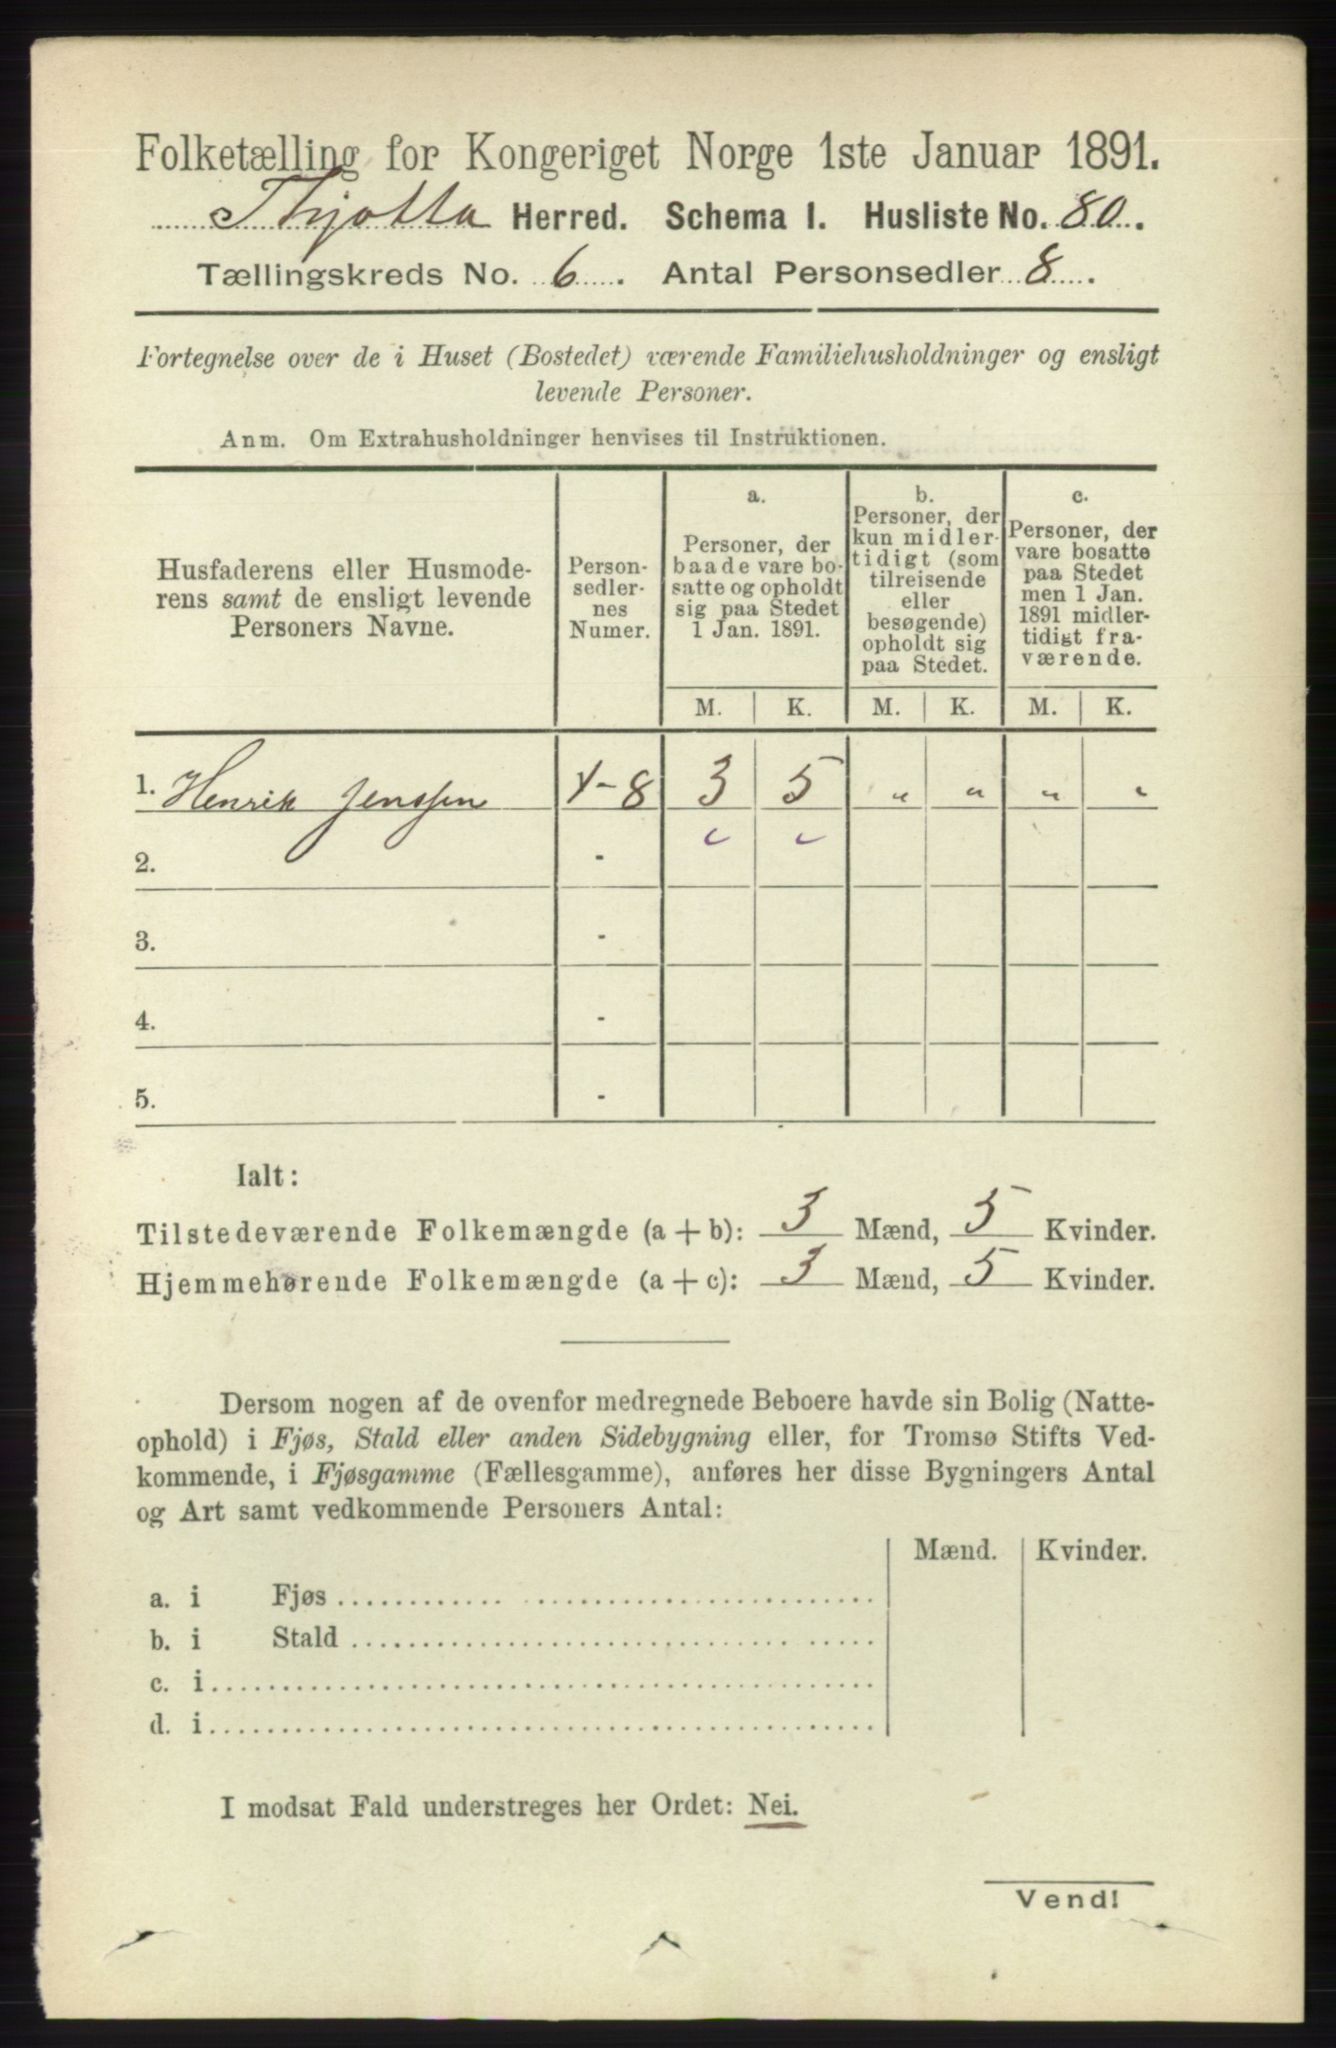 Folketælling for Kongeriget Norge 1ste Januar 1891.
Thjøtta Herred. Schema I. Husliste No. 80.
Tællingskreds No. 6. Antal Personsedler 8.
Fortegnelse over de i Huset (Bostedet) værende Familiehusholdninger og ensligt
levende Personer.
Anm. Om Extrahusholdninger henvises til Instruktionen.
Husfaderens eller Husmode-
rens samt de ensligt levende
Personers Navne.
Person-
sedler-
nes
Numer.
a.
Personer, der
baade vare bo-
satte og opholdt
sig paa Stedet
1 Jan. 1891.
b.
Personer, der
kun midler-
tidigt (som
tilreisende
eller
besøgende)
opholdt sig
paa Stedet.
c.
Personer, der
vare bosatte
paa Stedet
men 1 Jan.
1891 midler-
tidigt fra-
værende.
M. K. M. K. M. K.
1. Henrik Jenssen 1-8 3 5 " " " "
2. -
3. -
4. -
5. -
Ialt:
Tilstedeværende Folkemængde (a + b): 3 Mænd, 5 Kvinder.
Hjemmehørende Folkemængde (a + c): 3 Mænd, 5 Kvinder.
Dersom nogen af de ovenfor medregnede Beboere havde sin Bolig (Natte-
ophold) i Fjøs, Stald eller anden Sidebygning eller, for Tromsø Stifts Ved-
kommende, i Fjøsgamme (Fællesgamme), anføres her disse Bygningers Antal
og Art samt vedkommende Personers Antal:
Mænd. Kvinder.
a. i Fjøs
b. i Stald
c. i
d. i
I modsat Fald understreges her Ordet: Nei.
Vend!